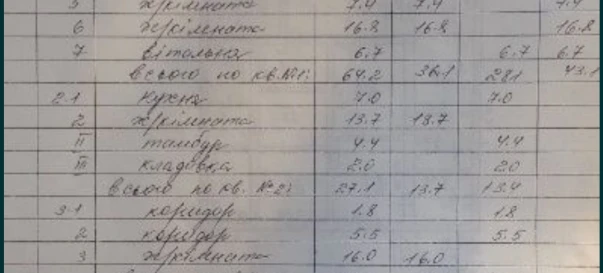 5 ж/кімната 7.4 7.4 7.4
6 ж/кімната 16.8 16.8 16.8
7 вітальня 6.7 6.7 6.7
всього по кв. №1: 64.2 36.1 28.1 43.1
2.1 кухня 7.0 7.0
2 ж/кімната 13.7 13.7
II тамбур 4.4 4.4
III кладовка 2.0 2.0
всього по кв. №2: 27.1 13.7 13.4
3.1 коридор 1.8 1.8
2 коридор 5.5 5.5
3 ж/кімната 16.0 16.0